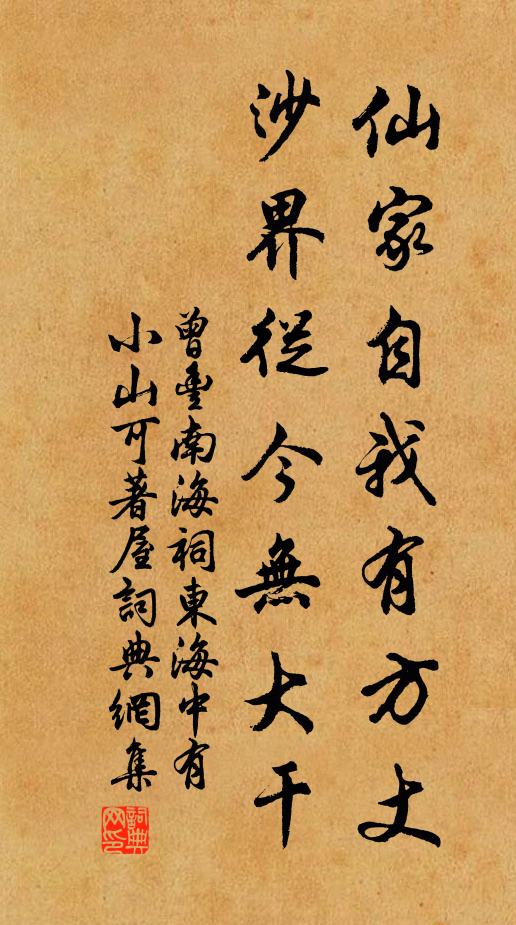 仙家自我有方丈
沙界從今無大千
曾豐南海祠東海中有
小山可著屋詞典網集
詞典
网印